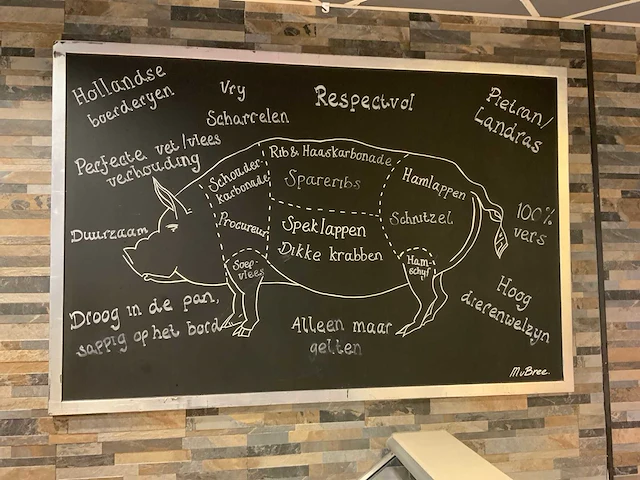 Hollandse
boerderyen
Vry
Scharrelen
Respectvol
Pietran/
Landras
Perfecte vet/vlees
verhouding
Schouder-
karbonade
Rib & Haaskarbonade
Spareribs
Hamlappen
Schnitzel
Procureur
Speklappen
Dikke krabben
Soep-
vlees
Ham-
schyf
Duurzaam
100%
vers
Droog in de pan,
sappig op het bord
Alleen maar
gelten
Hoog
dierenwelzyn
MvBree.